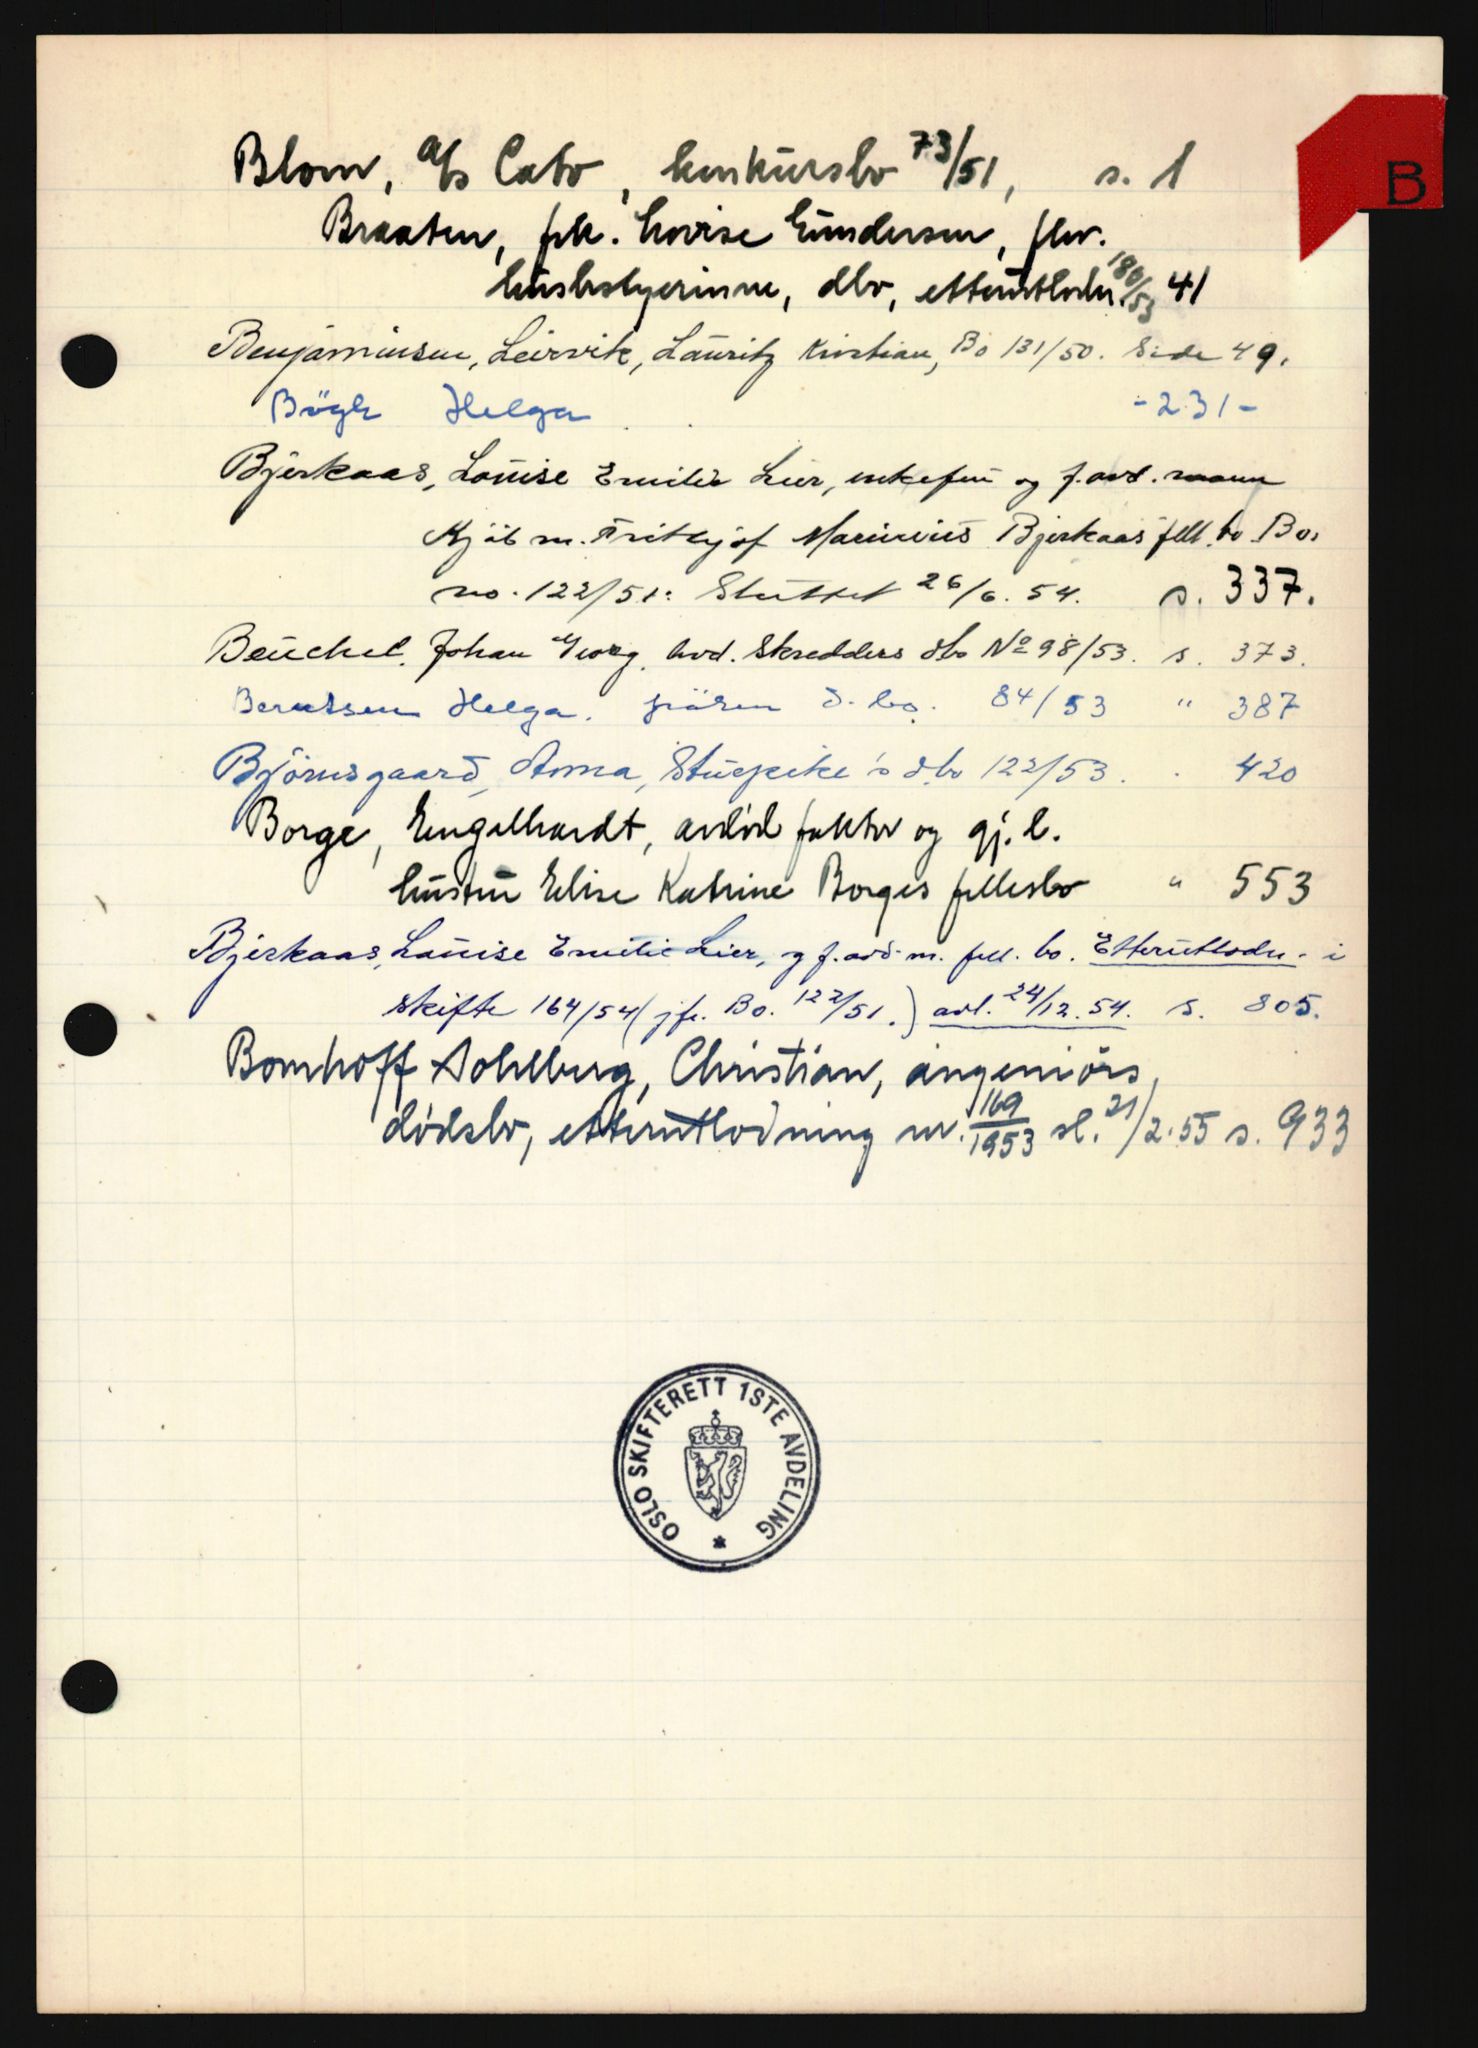 B
Blom, A/s Cato, konkursbo 73/51, s. 1
Braaten, frk. Lovise Gundersen, fhv.
husbstyerinne, dbo, etterutlodn. 180/53 41
Benjaminsen, Leirvik, Lauritz Kristian, Bo 131/50. Side 49.
Bögh Helga -231-
Bjerkaas, Louise Emilie Lier, enkefru og f. avd. mann
Kjöbm. Frithjof Marinius Bjerkaas fell. bo. Bo.
no. 122/51. Sluttet 26/6. 54. s. 337.
Beuchel, Johan Georg, avd. Skredders dbo No 98/53. s. 373.
Berntsen Helga. fröken d. bo. 84/53 " 387
Björnsgaard, Anna, Stuepike's dbo 122/53. . 420
Borge, Engelhardt, avdöd faktor og gj. l.
hustru Elise Katrine Borges fellesbo " 553
Bjerkaas, Louise Emilie Lier, og f. avd. m. fell. bo. Etterutlodn. i
skifte 164/54 (jfr. Bo. 122/51.) avl. 24/12. 54. s. 805.
Bomhoff Dohlberg, Christian, ingeniörs,
dödsbo, etterutlodning nr. 169/1953 sl. 21/2.55 s. 933
OSLO SKIFTERETT 1STE AVDELING